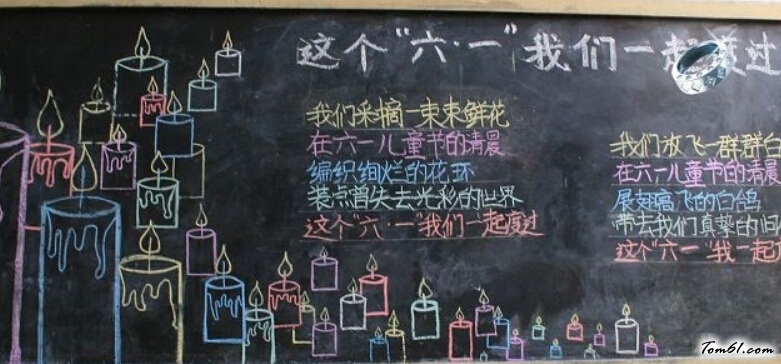 这个"六·一"我们一起度过
我们采摘一束束鲜花
在六一儿童节的清晨
编织绚烂的花环
装点曾失去光彩的世界
这个"六·一"我们一起度过
我们放飞一群群白
在六一儿童节的清晨
展翅高飞的白鸽
带去我们真挚的
这个"六·一"我一起
Tom61.com